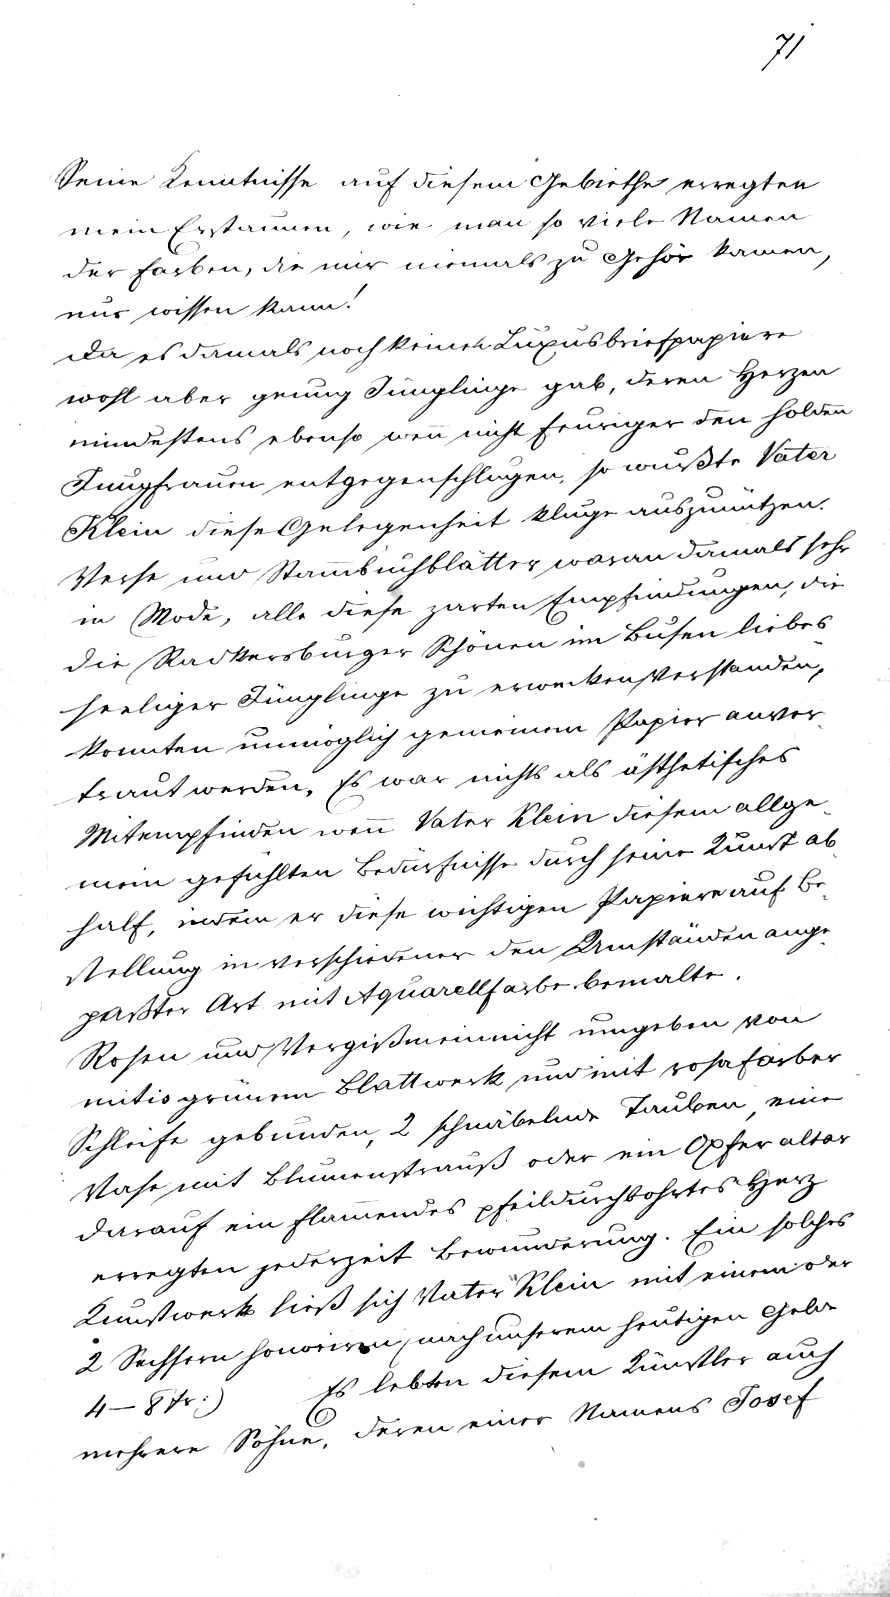 71
Seine Kenntnisse auf diesem Gebiethe erregten
mein Erstaunen, wie man so viele Namen
der Farben, die mir niemals zu Gehör kamen,
nur wissen kann!
Da es damals noch keine Luxusbriefpapiere
wohl aber genug Jünglinge gab, deren Herzen
mindestens ebenso wen̄ nicht feuriger den holden
Jungfrauen entgegenschlugen, so wußte Vater
Klein diese Gelegenheit kluge auszunützen.
Verse und Stam̄buchblätter waren damals sehr
in Mode, alle diese zarten Empfindungen, die
die Radkersburger Schönen im Busen liebes-
seeliger Jünglinge zu erwecken verstanden,
konnten unmöglich gemeinem Papier anver-
traut werden. Es war nichts als ästhetisches
Mitempfinden wen̄ Vater Klein diesem allge-
mein gefühlten Bedürfnisse durch seine Kunst ab-
half, indem er diese wichtigen Papiere auf Be-
stellung in verschiedener den Umständen ange-
paßter Art mit Aquarellfarbe bemalte.
Rosen und Vergißmeinnicht umgeben von
mitisgrünem Blattwerk und mit rosafarber
Schleife gebunden, 2 schnäbelnde Tauben, eine
Vase mit Blumenstrauß oder ein Opferaltar
darauf ein flam̄endes pfeildurchbohrtes Herz
erregten jederzeit Bewunderung. Ein solches
Kunstwerk ließ sich Vater Klein mit einem oder
2 Sechsern honoriren, (nach unserem heutigen Gelde
4–8 kr:) Es lebten diesem Künstler auch
mehrere Söhne, deren einer Namens Josef